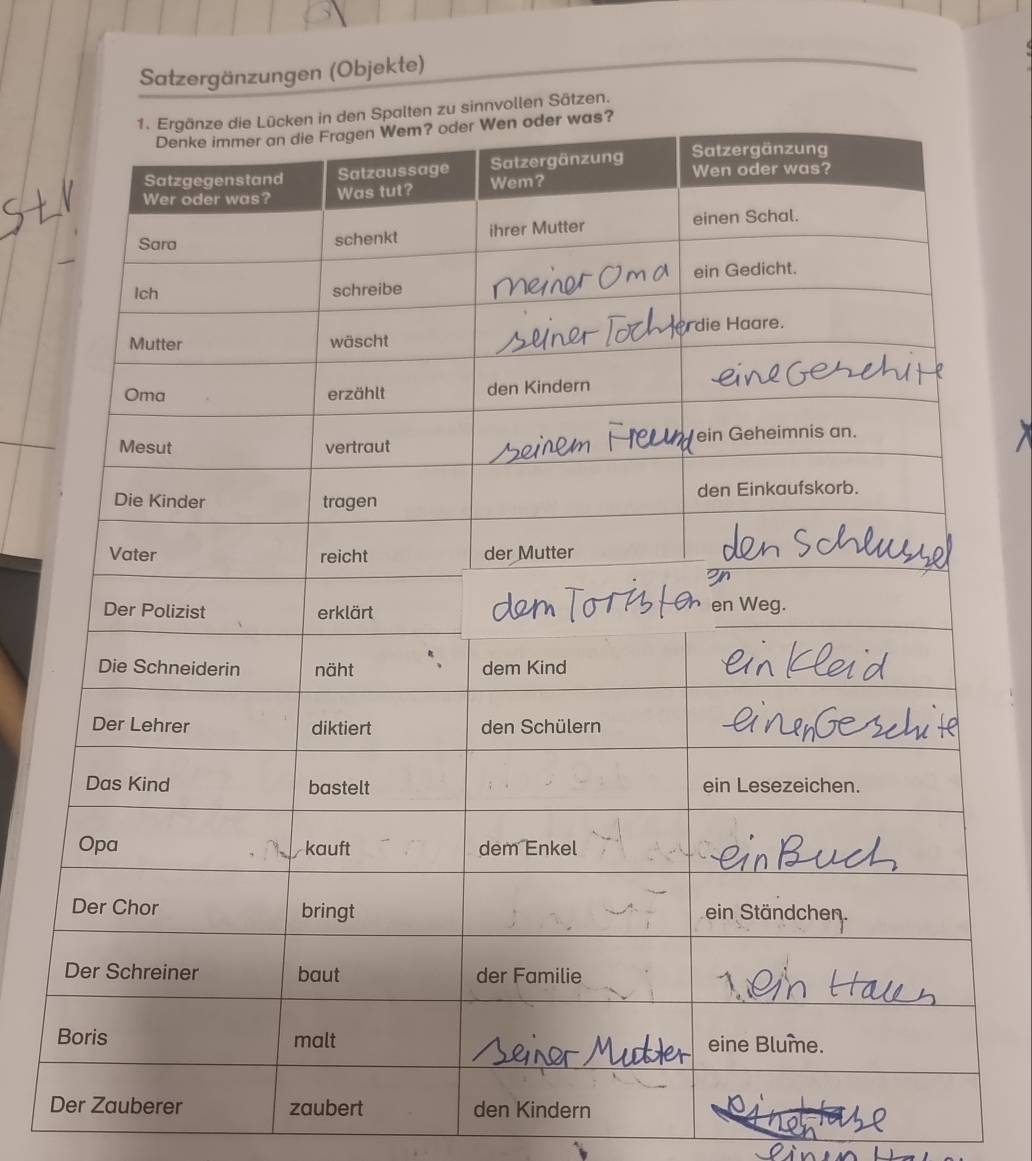 Satzergänzungen (Objekte)
1. Ergänze die Lücken in den Spalten zu sinnvollen Sätzen.
Denke immer an die Fragen Wem? oder Wen oder was?
Satzgegenstand Wer oder was? Satzaussage Was tut? Satzergänzung Wem? Satzergänzung Wen oder was?
Sara schenkt ihrer Mutter einen Schal.
Ich schreibe meiner Oma ein Gedicht.
Mutter wäscht seiner Tochter die Haare.
Oma erzählt den Kindern eine Geschite
Mesut vertraut seinem Freund ein Geheimnis an.
Die Kinder tragen den Einkaufskorb.
Vater reicht der Mutter den Schlussel
Der Polizist erklärt dem Toristen en Weg.
Die Schneiderin näht dem Kind ein Kleid
Der Lehrer diktiert den Schülern einen Geschite
Das Kind bastelt ein Lesezeichen.
Opa kauft dem Enkel ein Buch
Der Chor bringt ein Ständchen.
Der Schreiner baut der Familie ein Haus
Boris malt seiner Mutter eine Blume.
Der Zauberer zaubert den Kindern
einen